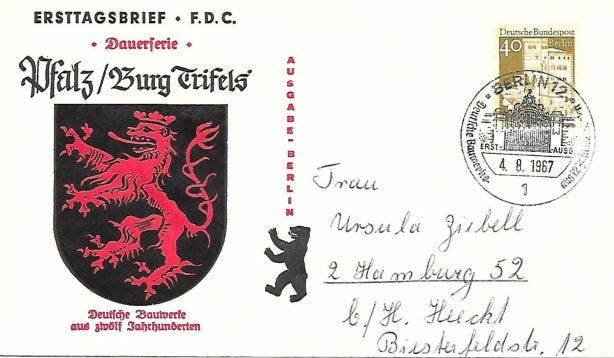 ERSTTAGSBRIEF · F.D.C.
· Dauerserie ·
Pfalz/Burg Trifels
AUSGABE-BERLIN
Deutsche Bauwerke
aus zwölf Jahrhunderten
Deutsche Bundespost
40 Berlin
BERLIN 12
Deutsche Bauwerke
aus 12
ERST- AUSG
4.8.1967
Frau
Ursula Ziebell
2 Hamburg 52
b/H. Hueckt
Biesterfeldstr. 12